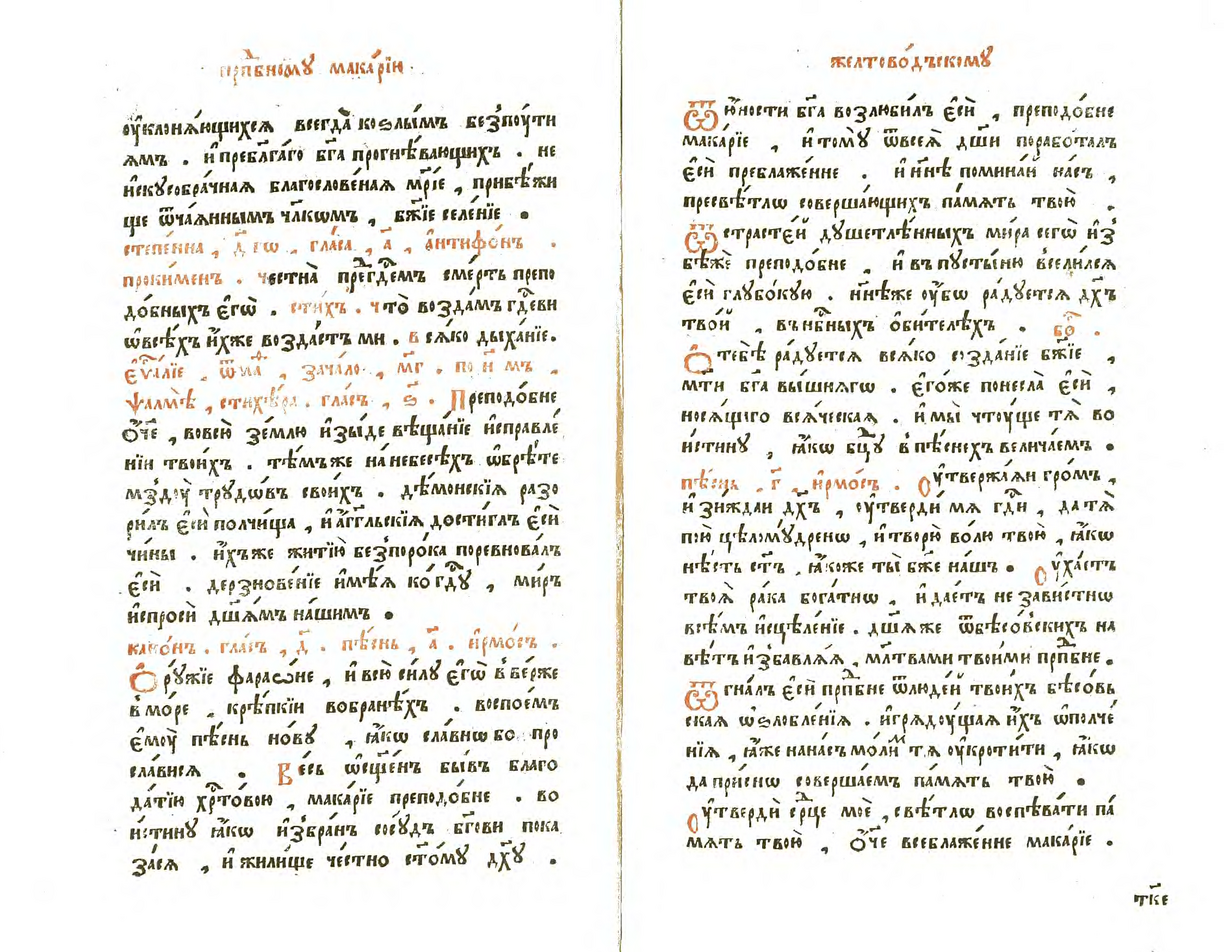 прпⷣбному мака́рїю
ᲂу҆клонѧ́ющихсѧ всегда̀ коѕлы́мъ безпꙋти
ѧмъ . и҆ пребл҃га́го бг҃а прогнѣ́вающихъ . не
и҆скусобра́чнаѧ благослове́наѧ мр҃їе , прибѣ́жи
ще ѿча́ѧннымъ чл҃кѡмъ , бж҃їе селе́нїе .
степе́нна , д҃ , гла́са , а҃ , а҆нтифо́нъ .
проки́менъ . че́стна̀ преⷣ гдⷭ҇емъ сме́рть препо
до́бныхъ є҆гѡ̀ . сти́хъ . что̀ возда́мъ гдⷭ҇еви
ѡ҆всѣ́хъ и҆́хже возда́стъ ми . всѧ́ко дыха́нїе .
є҆ѵⷢ҇а́лїе . ѿ , зача́ло , мг҃ . по н҃ мъ ,
ѱалмѣ̀ , стихѣ́ра . гла́съ , ѕ҃ . Преподо́бне
ѻ҆́ч҃е , вовсю̀ зе́млю и҆зы́де вѣща́нїе и҆справле́
нїи твои́хъ . тѣ́мъже на небесѣ́хъ ѡ҆брѣ́те
мздꙋ̀ трудѡ́въ свои́хъ . де́монскїѧ разо
ри́лъ є҆сѝ полчища , и҆ а҆́гг҃льскїѧ дости́глъ є҆сѝ
чи́ны . и҆́хъже житїю̀ безпоро́ка поревнова́лъ
є҆сѝ . дерзнове́нїе и҆мѣ́ѧ ко гдⷭ҇у , ми́ръ
и҆спросѝ дш҃а́мъ на́шимъ .
кано́нъ . гла́съ , д҃ . пѣ́снь , а҃ . і҆рмо́съ .
Ѻ҆ру́жїе фараѡ́не , и҆ всю̀ си́лу є҆гѡ̀ вве́рже
в мо́ре , крѣ́пкїи вобране́хъ . воспое́мъ
є҆мꙋ̀ пѣ́снь но́ву , ꙗ҆́кѡ сла́внѡ бо про
сла́висѧ . Ве́сь ѡ҆сщ҃е́нъ бы́въ благо
да́тїю хрⷭ҇то́вою , мака́рїе преподо́бне . во
и҆́стину ꙗ҆́кѡ и҆збра́нъ сосу́дъ бг҃ови пока
за́сѧ , и҆ жили́ще че́стно ст҃о́му дх҃у .
желтово́дъскому
Ѿ ю҆́ности бг҃а возлюби́лъ є҆сѝ , преподо́бне
мака́рїе , и҆ тому̀ ѿ всеѧ̀ дш҃и порабо́талъ
є҆сѝ преблаже́нне . и҆ нн҃ѣ помина́й на́съ ,
пресвѣ́тлѡ соверша́ющихъ па́мѧть твою̀ .
Ѿ страсте́й душетлѣ́нныхъ ми́ра сегѡ̀ и҆з
бѣ́же преподо́бне , и҆ въ пусты́ню всели́лсѧ
є҆сѝ глубо́кую . нн҃ѣже ᲂу҆́бѡ ра́дуетсѧ дх҃ъ
тво́й , въ нбⷭ҇ныхъ ѻ҆би́телѣхъ . бо .
Ѻ҆ тебѣ̀ ра́дуетсѧ всѧ́ко созда́нїе бж҃їе ,
мт҃и бг҃а вы́шнѧгѡ . є҆го́же понесла̀ є҆сѝ ,
носѧ́щаго всѧ́ческаѧ . и҆ мы̀ чтꙋще тѧ̀ во
и҆́стину , ꙗ҆́кѡ бцⷣу в пѣ́снехъ велича́емъ .
пѣ́снь , г҃ , і҆рмо́съ . Оу҆твержда́ѧи гро́мъ ,
и҆ зижда́и дх҃ъ , ᲂу҆твердѝ мѧ гдⷭ҇и , да тѧ̀
пою̀ цѣлому́дренѡ , и҆ творю̀ во́лю твою̀ , ꙗ҆́кѡ
нѣ́сть ст҃ъ , ꙗ҆́коже ты̀ бж҃е на́шъ . Оу҆ха́етъ
твоѧ̀ ра́ка бога́тнѡ , и҆ дае́тъ не зави́стнѡ
всѣ́мъ и҆сцѣле́нїе . дш҃а́же ѿ бѣсо́вскихъ на
вѣ́тъ и҆збавлѧ́ѧ , мл҃твами твои́ми прпⷣбне .
Ѿгна́лъ є҆сѝ прпⷣбне ѿ люде́й твои́хъ бѣсо́вь
скаѧ ѡ҆ѕлобле́нїѧ . и҆ грѧдꙋ́щаѧ и҆́хъ ѡ҆полче́
нїѧ , ꙗ҆́же на на́съ мо́лимⷨ тѧ ᲂу҆кроти́ти , ꙗ҆́кѡ
да при́снѡ соверша́емъ па́мѧть твою̀ .
Оу҆твердѝ срⷣце моѐ , свѣ́тлѡ воспѣва́ти па́
мѧть твою̀ , ѻ҆́ч҃е всеблаже́нне мака́рїе .
тк҃е